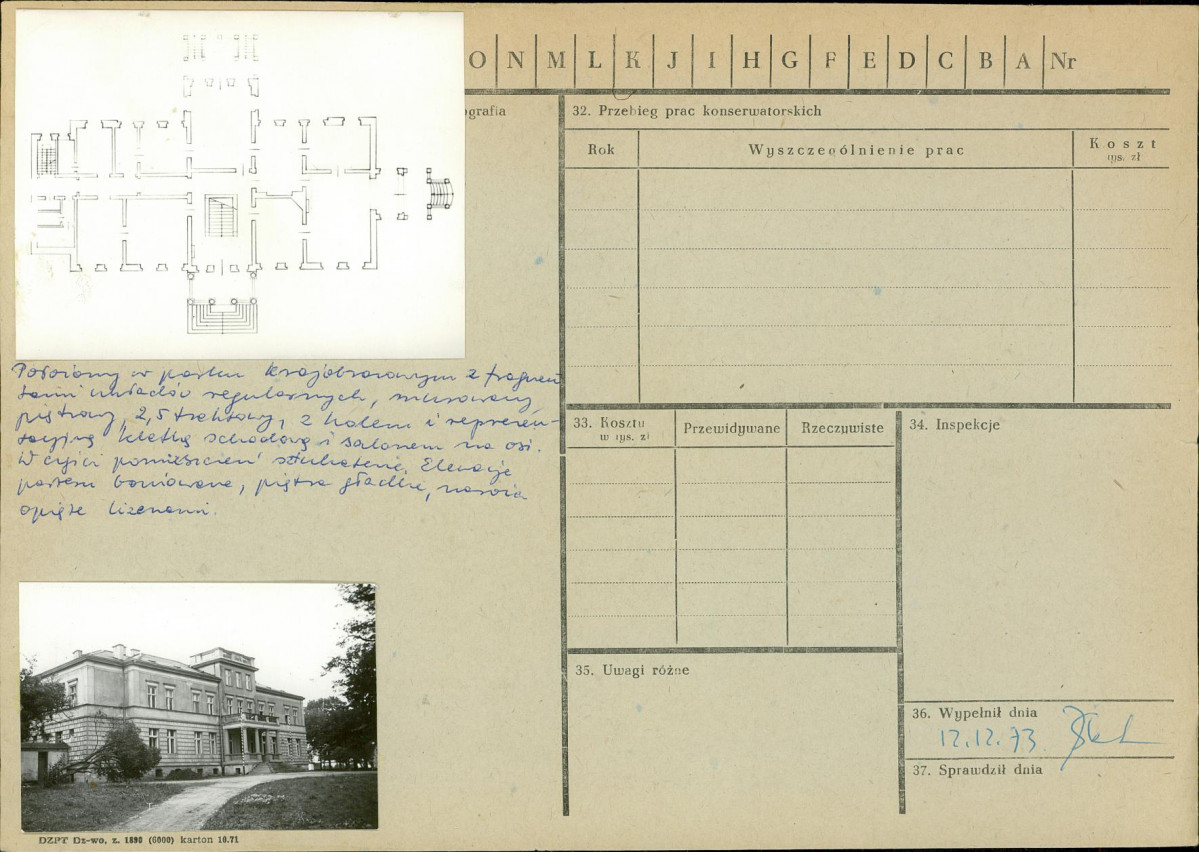 O N M L K J I H G F E D C B A Nr
ografia
32. Przebieg prac konserwatorskich
Rok
Wyszczególnienie prac
Koszt
tys. zł
Położony w parku krajobrazowym z fragmen
tami układów regularnych, murowany,
piętrowy, 2,5 traktowy, z holem i reprezen-
tacyjną klatką schodową i salonem na osi.
W części pomieszczeń sztukaterie. Elewacje
parteru boniowane, piętra gładkie, naroża
opięte lizenami.
33. Koszty
w tys. zł
Przewidywane
Rzeczywiste
34. Inspekcje
35. Uwagi różne
36. Wypełnił dnia
12.12.73
37. Sprawdził dnia
DZPT Dz-wo, z. 1890 (6000) karton 10.71